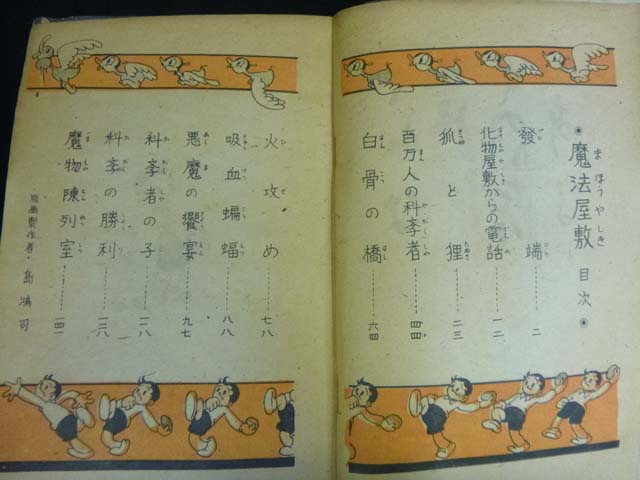 ◉魔法屋敷 目次◉
發端………二
化物屋敷からの電話………一二
狐と狸………二三
百万人の科学者………四四
白骨の橋………六四
火攻め………七八
吸血蝙蝠………八八
悪魔の饗宴………九七
科学者の子………一一八
科学の勝利………一二八
魔物陳列室………一四一
製作者・島鴻司